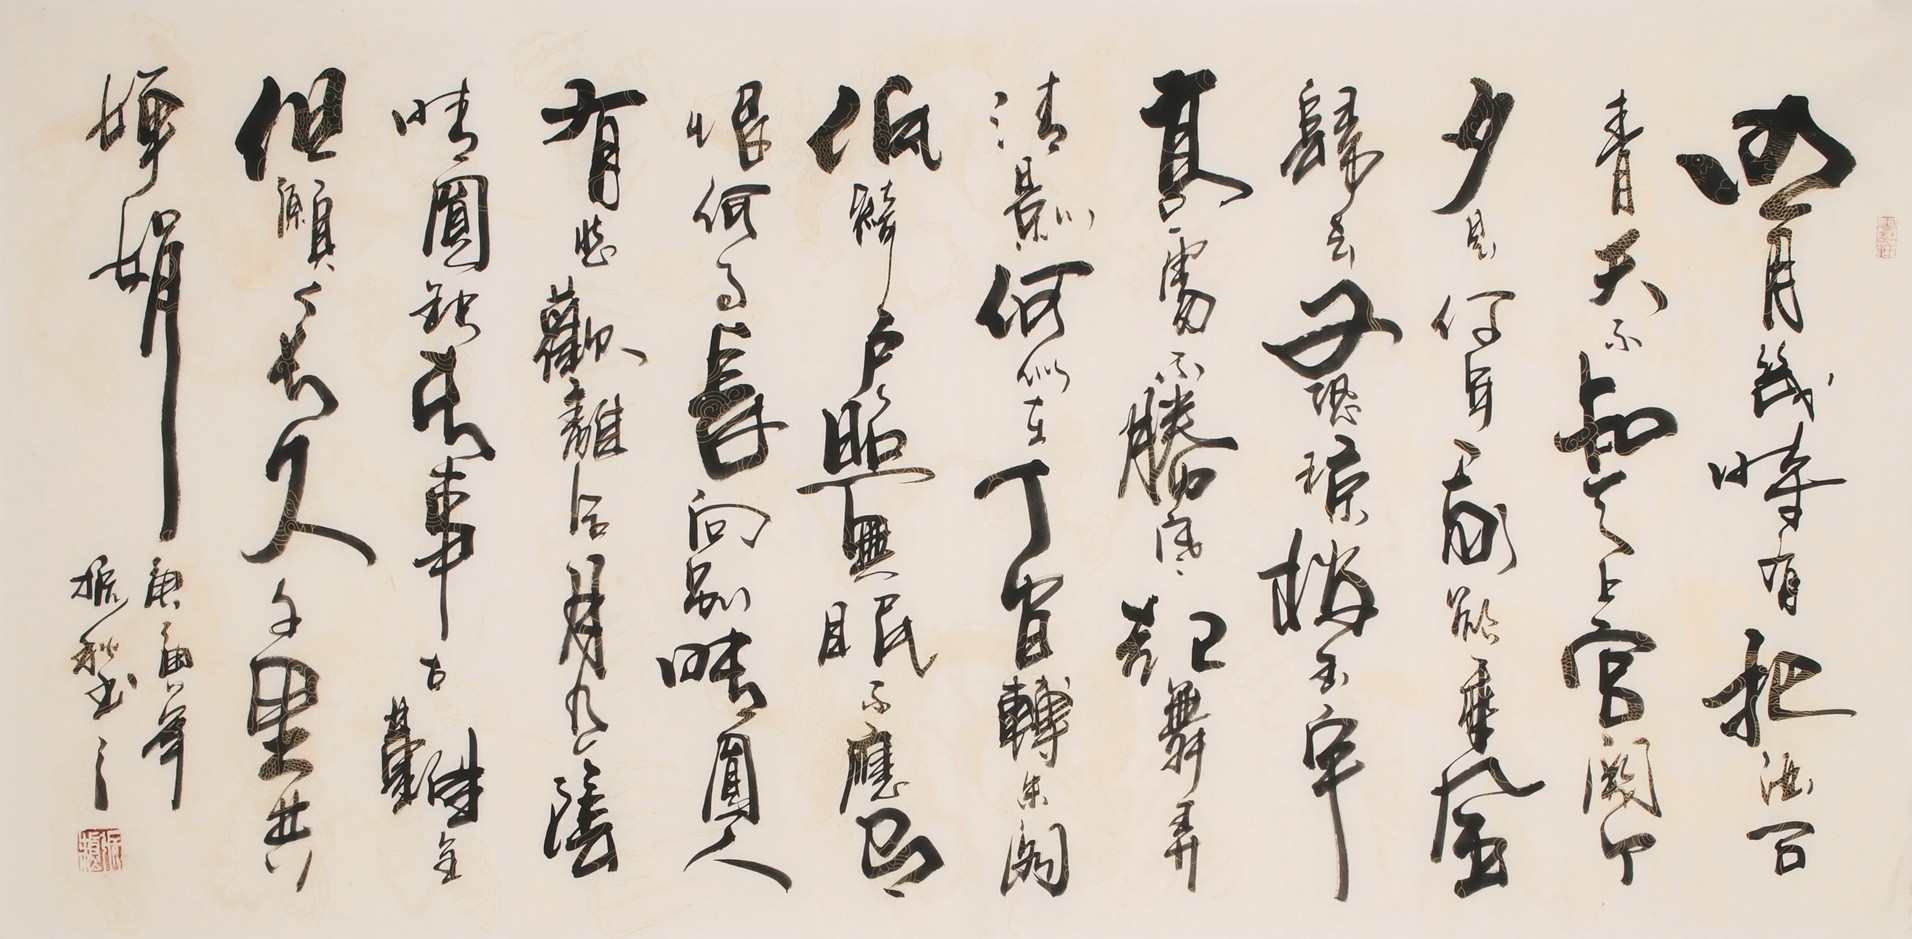 明月幾時有把酒问
青天不知天上宮闕今
夕是何年我欲乘風
歸去又恐瓊樓玉宇
高處不勝寒起舞弄
清影何似在人間轉朱閣
低綺戶照無眠不應有
恨何事長向別時圓人
有悲歡離合月有陰
晴圓缺此事古難全
但願人長久千里共
嬋娟
庚寅年